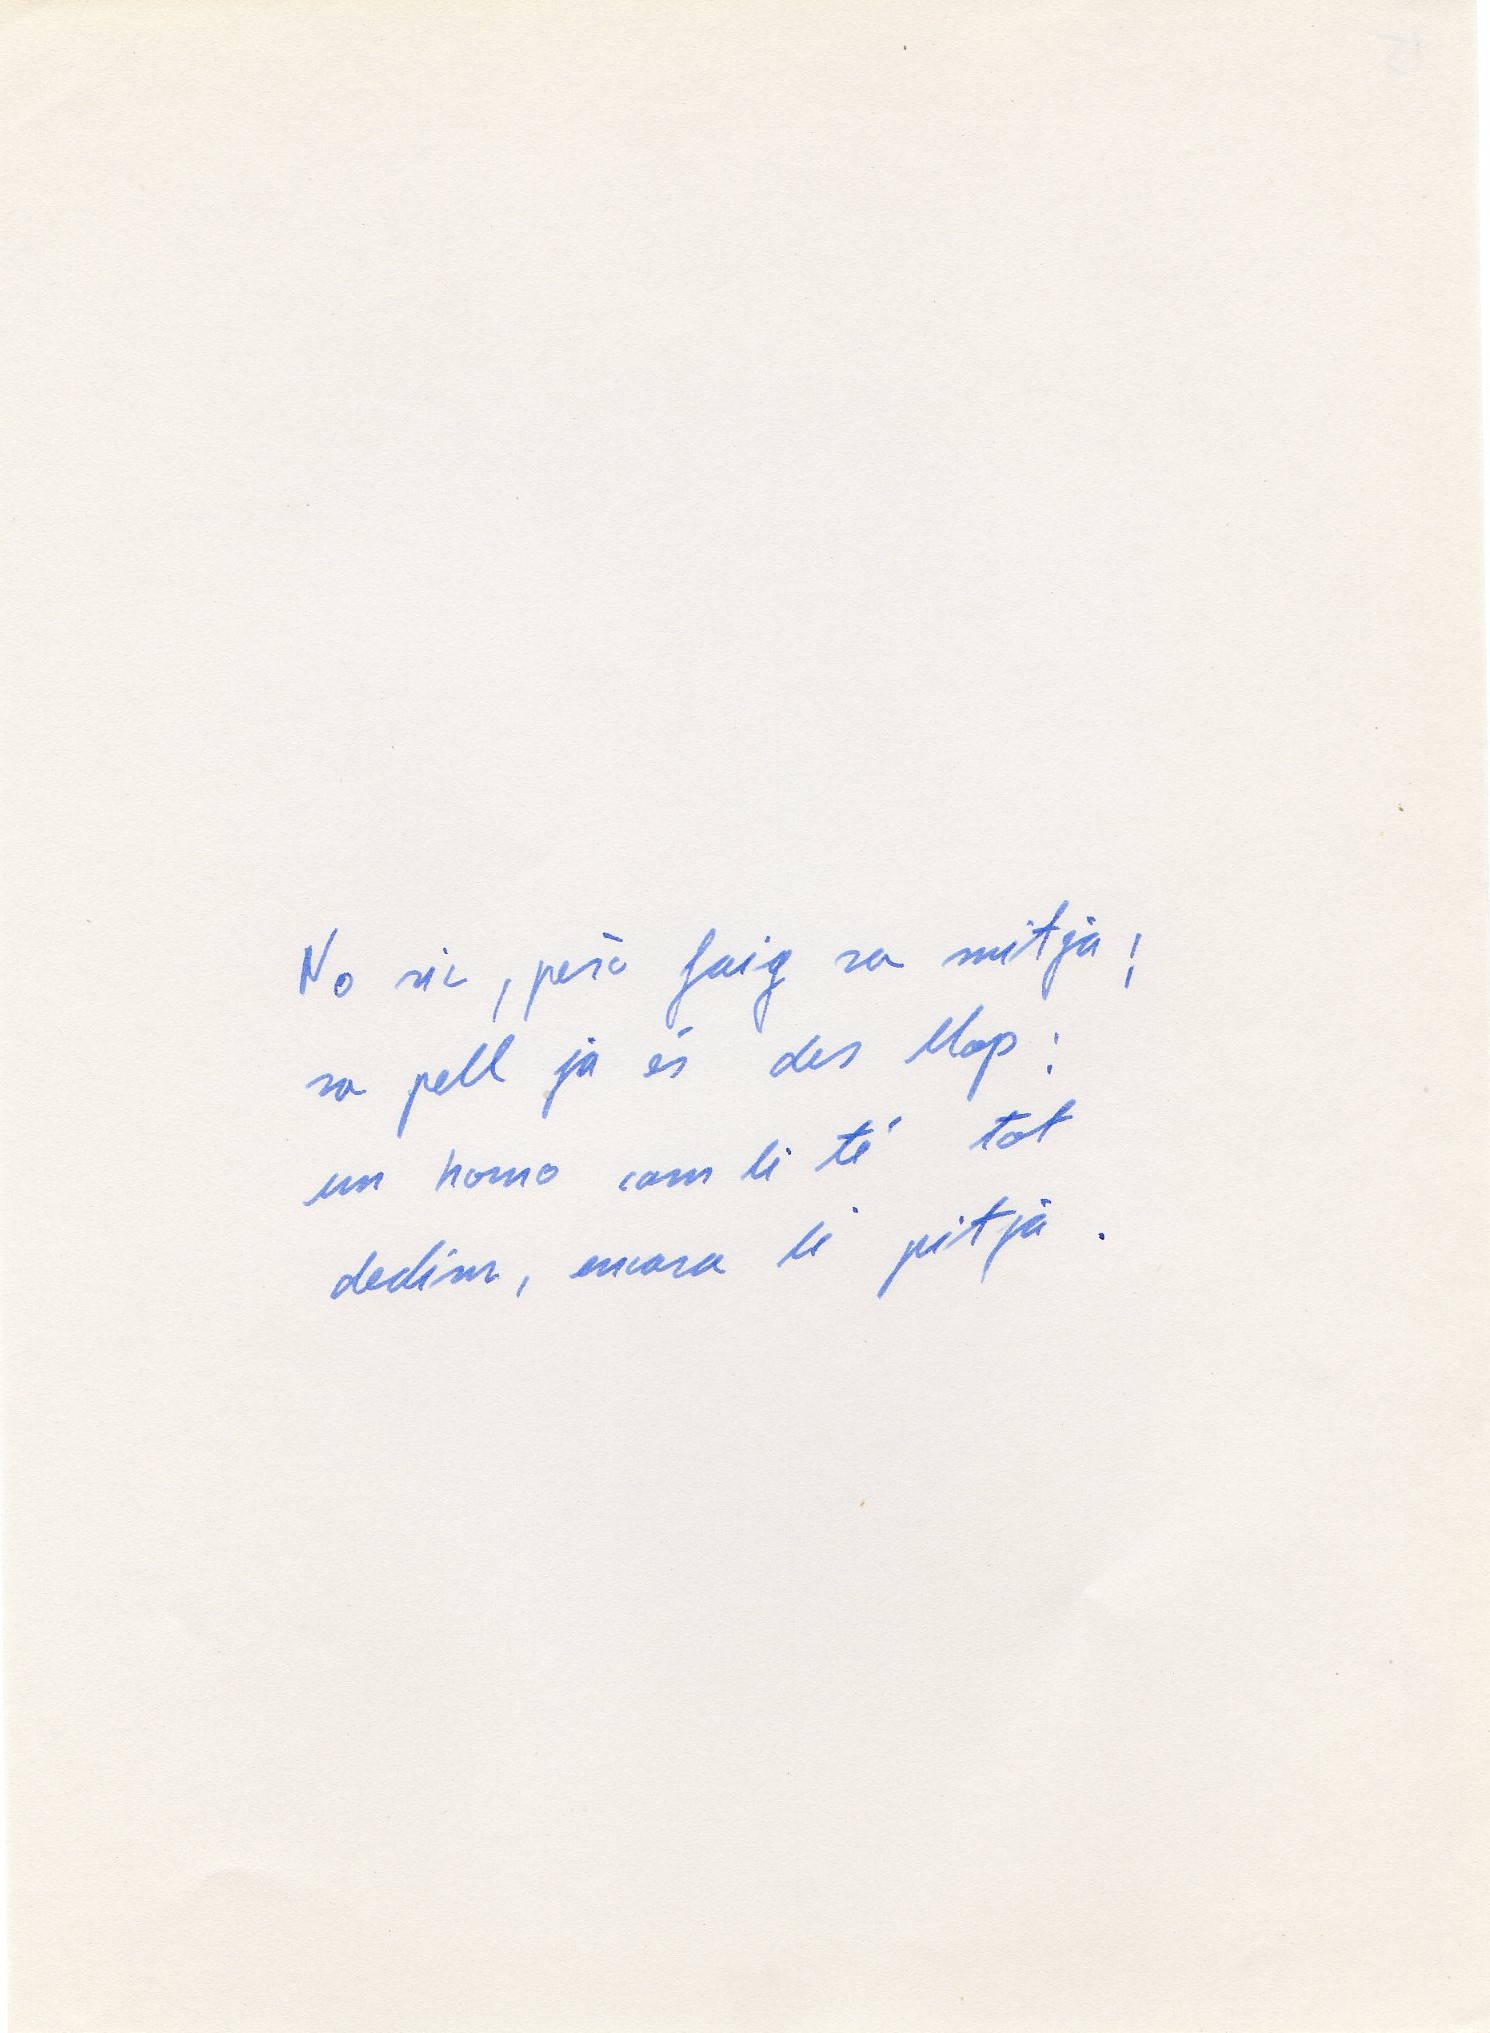 No ric, però faig sa mitja;
sa pell ja és des llop:
un homo com li té tot
dedins, encara li pitja.